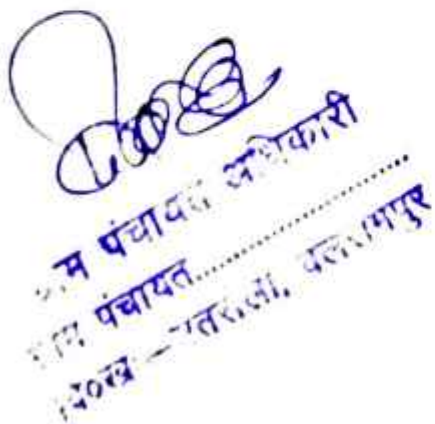 ग्राम पंचायत अधिकारी
ग्राम पंचायत....................
वि०ख० – उतरौला, बलरामपुर